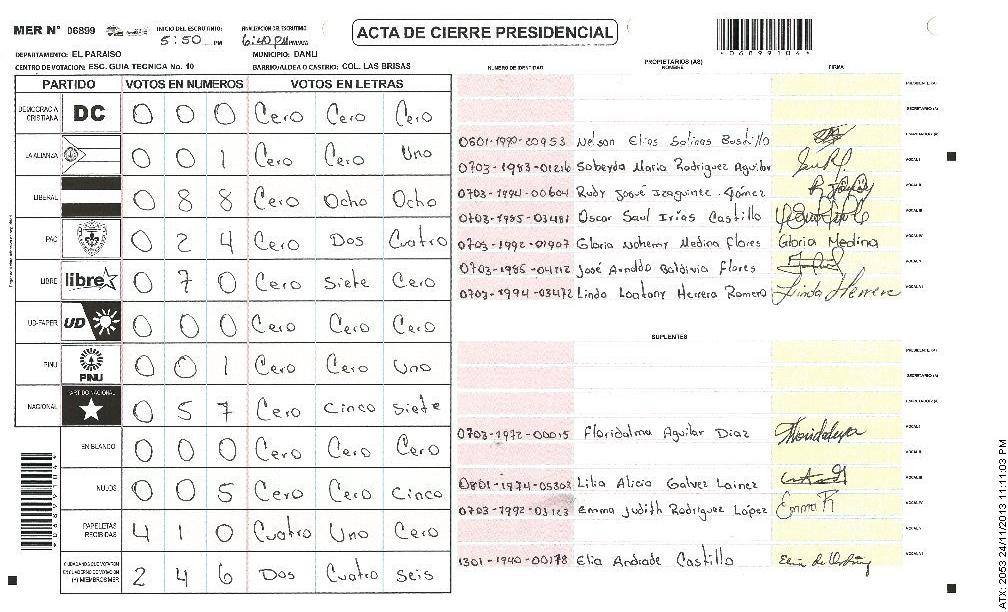 MER N° 06899 INICIO DEL ESCRUTINIO: 5:50 PM FINALIZACION DEL ESCRUTINIO: 6:40 PM
ACTA DE CIERRE PRESIDENCIAL
DEPARTAMENTO: EL PARAISO MUNICIPIO: DANLI
CENTRO DE VOTACION: ESC. GUIA TECNICA No. 10 BARRIO/ALDEA O CASERIO: COL. LAS BRISAS
PARTIDO VOTOS EN NUMEROS VOTOS EN LETRAS
DEMOCRACIA CRISTIANA DC 0 0 0 Cero Cero Cero
LA ALIANZA 0 0 1 Cero Cero Uno
LIBERAL 0 8 8 Cero Ocho Ocho
PAC 0 2 4 Cero Dos Cuatro
LIBRE libre 0 7 0 Cero Siete Cero
UD-FAPER UD 0 0 0 Cero Cero Cero
PINU PINU 0 0 1 Cero Cero Uno
NACIONAL PARTIDO NACIONAL 0 5 7 Cero Cinco Siete
EN BLANCO 0 0 0 Cero Cero Cero
NULOS 0 0 5 Cero Cero Cinco
PAPELETAS RECIBIDAS 4 1 0 Cuatro Uno Cero
CIUDADANOS QUE VOTARON EN CUADERNO DE VOTACION (+) MIEMBROS MER 2 4 6 Dos Cuatro Seis
PROPIETARIOS (AS)
NUMERO DE IDENTIDAD NOMBRE FIRMA
PRESIDENTE (A)
SECRETARIO (A)
ESCRUTADOR (A)
0801-1990-20953 Nelson Elias Salinas Bustillo
0703-1983-01216 Sobeyda Maria Rodriguez Aguilar VOCAL I
0703-1994-00604 Rudy Josué Izaguirre Gómez VOCAL II
0703-1985-03481 Oscar Saul Irías Castillo VOCAL III
0703-1992-01907 Gloria Nohemy Medina Flores Gloria Medina VOCAL IV
0703-1985-04212 José Arnaldo Baldivia Flores VOCAL V
0703-1994-03472 Linda Herrera Romero Linda Herrera VOCAL VI
SUPLENTES
PRESIDENTE (A)
SECRETARIO (A)
ESCRUTADOR (A)
0703-1972-00015 Floridalma Aguilar Diaz Floridalma VOCAL I
VOCAL II
0801-1974-05302 Lilia Alicia Galvez Lainez VOCAL III
0703-1992-03123 Emma Judith Rodriguez López Emma R VOCAL IV
VOCAL V
1301-1940-00178 Elia Andrade Castillo VOCAL VI
ATX: 2053 24/11/2013 11:11:03 PM